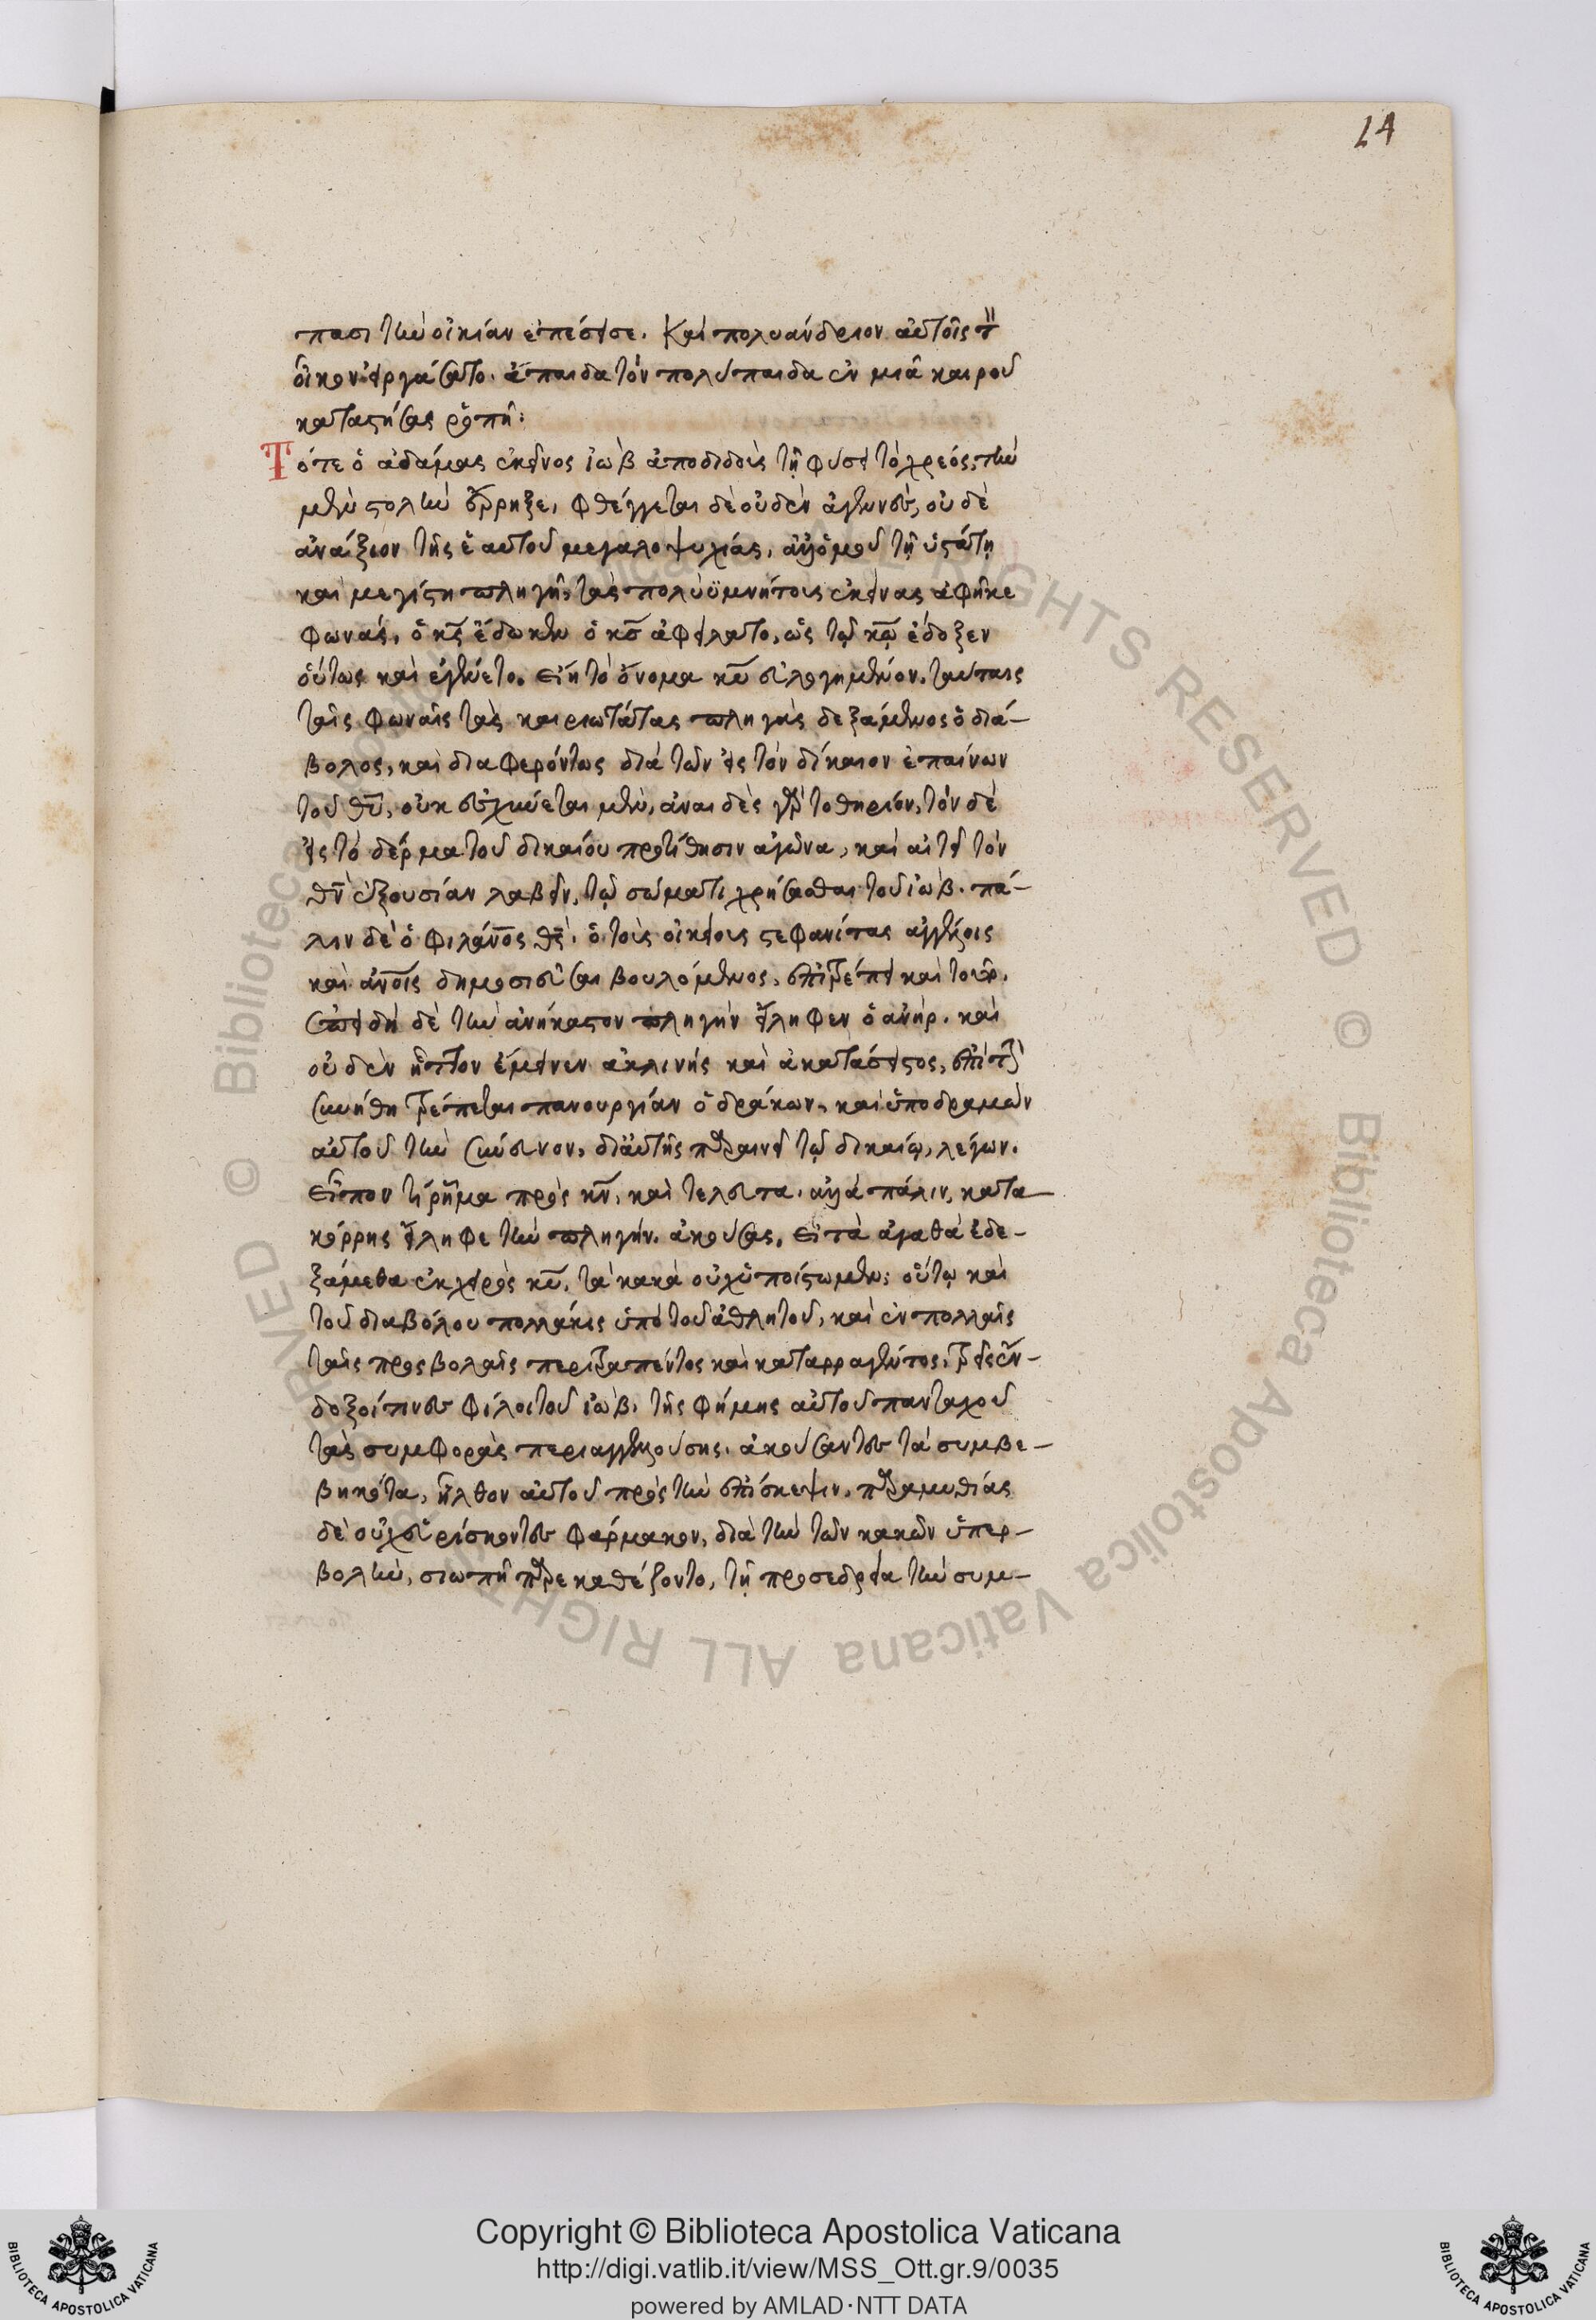 14
πασι τὴν οἰκίαν ἐπέσεισε. Καὶ πολυάνδριον αὐτοῖς τὸν
οἶκον εἰργάσατο. ἄπαιδα τὸν πολύπαιδα ἐν μιᾷ καιροῦ
καταστήσας ῥοπῇ:
Τότε ὁ ἀδάμας ἐκεῖνος ἰὼβ ἀποδιδοὺς τῇ φύσει τὸ χρεός, τὴν
μὲν στολὴν ἔρρηξε, φθέγγεται δὲ οὐδὲν ἀγεννὲς, οὐδὲ
ἀνάξιον τῆς ἑαυτοῦ μεγαλοψυχίας, ἀλλ' ὁμοῦ τῇ ὑστάτῃ
καὶ μεγίστη πληγῇ, τὰς πολυϋμνήτους ἐκείνας ἀφῆκε
φωνάς, ὁ κς ἔδωκεν ὁ κς ἀφείλατο, ὡς τῷ κω ἔδοξεν
οὕτως καὶ ἐγένετο. εἴη τὸ ὄνομα κυ εὐλογημένον. ταύταις
ταῖς φωναῖς τὰς καιριωτάτας πληγὰς δεξάμενος ὁ διά-
βολος, καὶ διαφερόντως διὰ τῶν εἰς τὸν δίκαιον ἐπαίνων
τοῦ θυ, οὐκ αἰσχύνεται μὲν, ἀναιδὲς γὰρ τὸ θηρίον, τὸν δὲ
εἰς τὸ δέρμα τοῦ δικαίου προτίθησιν ἀγῶνα, καὶ αἰτεῖ τὸν
θν ἐξουσίαν λαβεῖν, τῷ σώματι χρήσασθαι τοῦ ἰώβ. πά-
λιν δὲ ὁ φιλάνος θς, ὁ τοὺς οἰκείους στεφανίτας ἀγγέλοις
καὶ ἀνοις δημοσιεῦσαι βουλόμενος, ἐπιτρέπει καὶ τοῦτο.
ἐπειδὴ δὲ τὴν ἀνήκαστον πληγὴν εἴληφεν ὁ ἀνήρ. καὶ
οὐδὲν ἧττον ἔμεινεν ἀκλινής καὶ ἀκατάσειστος, ἐπὶ τὴν
συνήθη τρέπεται πανουργίαν ὁ δράκων, καὶ ὑποδραμὼν
αὐτοῦ τὴν σύνευνον, δι' αὐτῆς παραινεῖ τῷ δικαίῳ, λέγων.
εἶπον τὶ ῥῆμα πρὸς κν, καὶ τελεύτα. ἀλλὰ πάλιν, κατα
κόρρης εἴληφε τὴν πληγήν. ἀκούσας, εἰ τὰ ἀγαθὰ ἐδε-
ξάμεθα ἐκ χειρὸς κυ, τὰ κακὰ οὐχ ὑποίσωμεν; οὕτω καὶ
τοῦ διαβόλου πολλάκις ὑπὸ τοῦ ἀθλητοῦ, καὶ ἐν πολλαῖς
ταῖς προσβολαῖς περιτραπέντος καὶ καταρραγέντος, τρεῖς ἔν-
δοξοί τινες φίλοι τοῦ ἰὼβ, τῆς φήμης αὐτοῦ πανταχοῦ
τὰς συμφορὰς περιαγγελλούσης, ἀκούσαντες τὰ συμβε-
βηκότα, ἦλθον αὐτοῦ πρὸς τὴν ἐπίσκεψιν, παραμυθίας
δὲ οὐχ εὑρίσκοντες φάρμακον, διὰ τὴν τῶν κακῶν ὑπερ-
βολὴν, σιωπῇ παρεκαθέζοντο, τῇ προσεδρεία τὴν συμ-
Copyright © Biblioteca Apostolica Vaticana
http://digi.vatlib.it/view/MSS_Ott.gr.9/0035
powered by AMLAD·NTT DATA